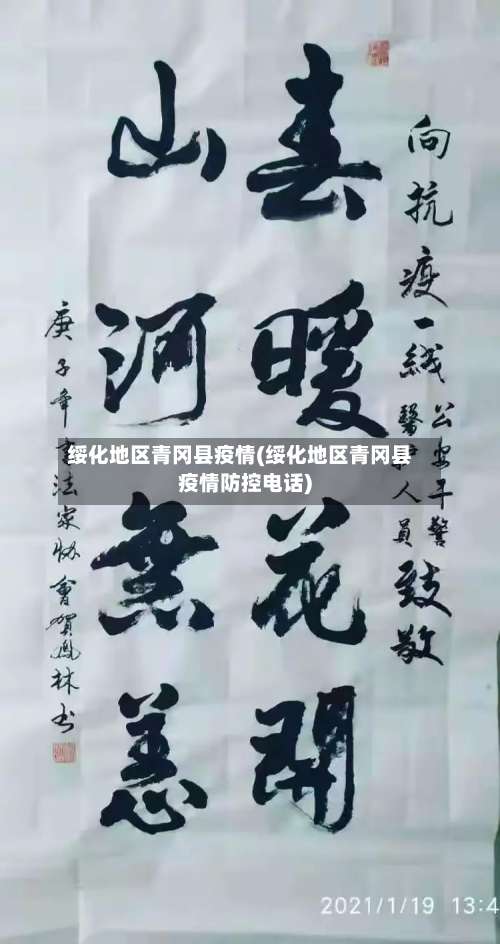 向抗疫一线醫护人員公安干警致敬
春暖花開
山河無恙
庚子年書法家协會賀鳳林书
绥化地区青冈县疫情(绥化地区青冈县
疫情防控电话)
2021/1/19 13:4